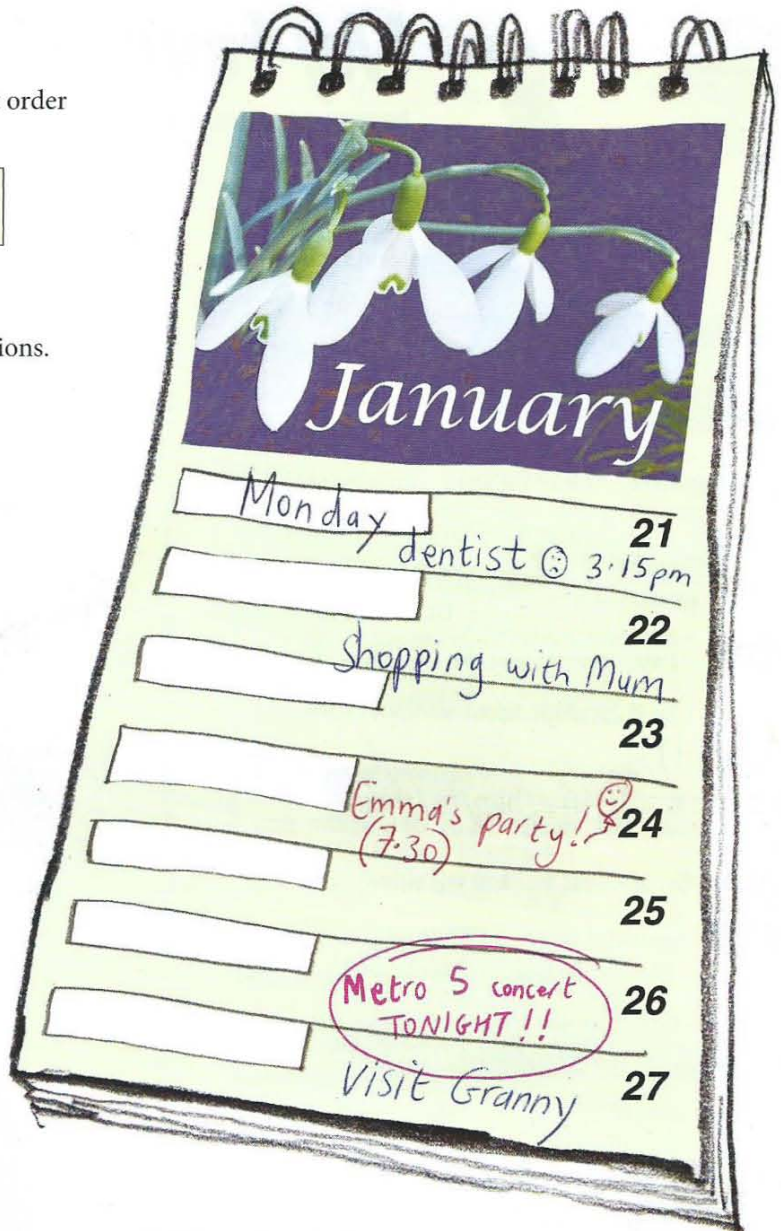 order
ions.
January
Monday
21
dentist 3.15pm
22
Shopping with Mum
23
Emma's party!
24
(7.30)
25
Metro 5 concert
26
TONIGHT!!
27
Visit Granny